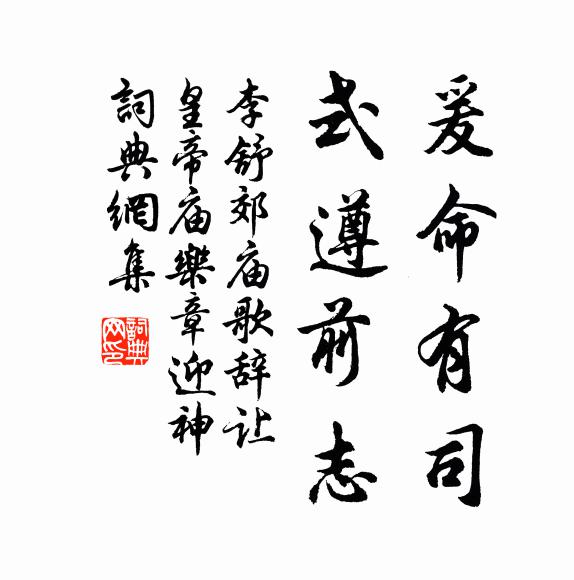 爰命有司
式遵前志
李舒郊庙歌辞让
皇帝庙樂章迎神
詞典網集
詞典网印